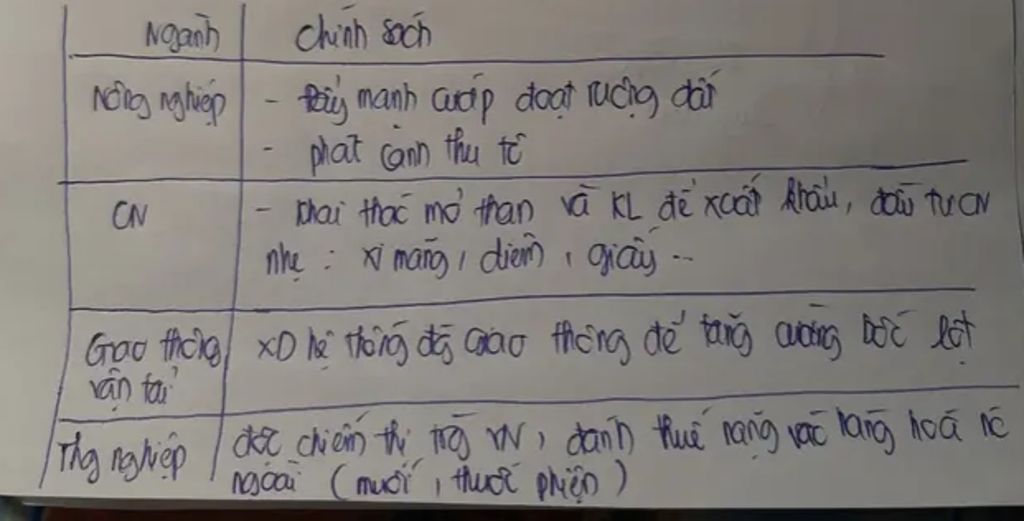 Ngành chính sách
Nông nghiệp - đẩy mạnh cướp đoạt ruộng đất
- phát canh thu tô
CN - khai thác mỏ than và KL để xuất khẩu, đầu tư CN
nhẹ : xi măng, diêm, giấy ...
Giao thông XD hệ thống đg giao thông để tăng cường bóc lột
vận tải
Thg nghiệp độc chiếm thị trg VN, đánh thuế nặng các hàng hoá nc
ngoài (muối, thuốc phiện)